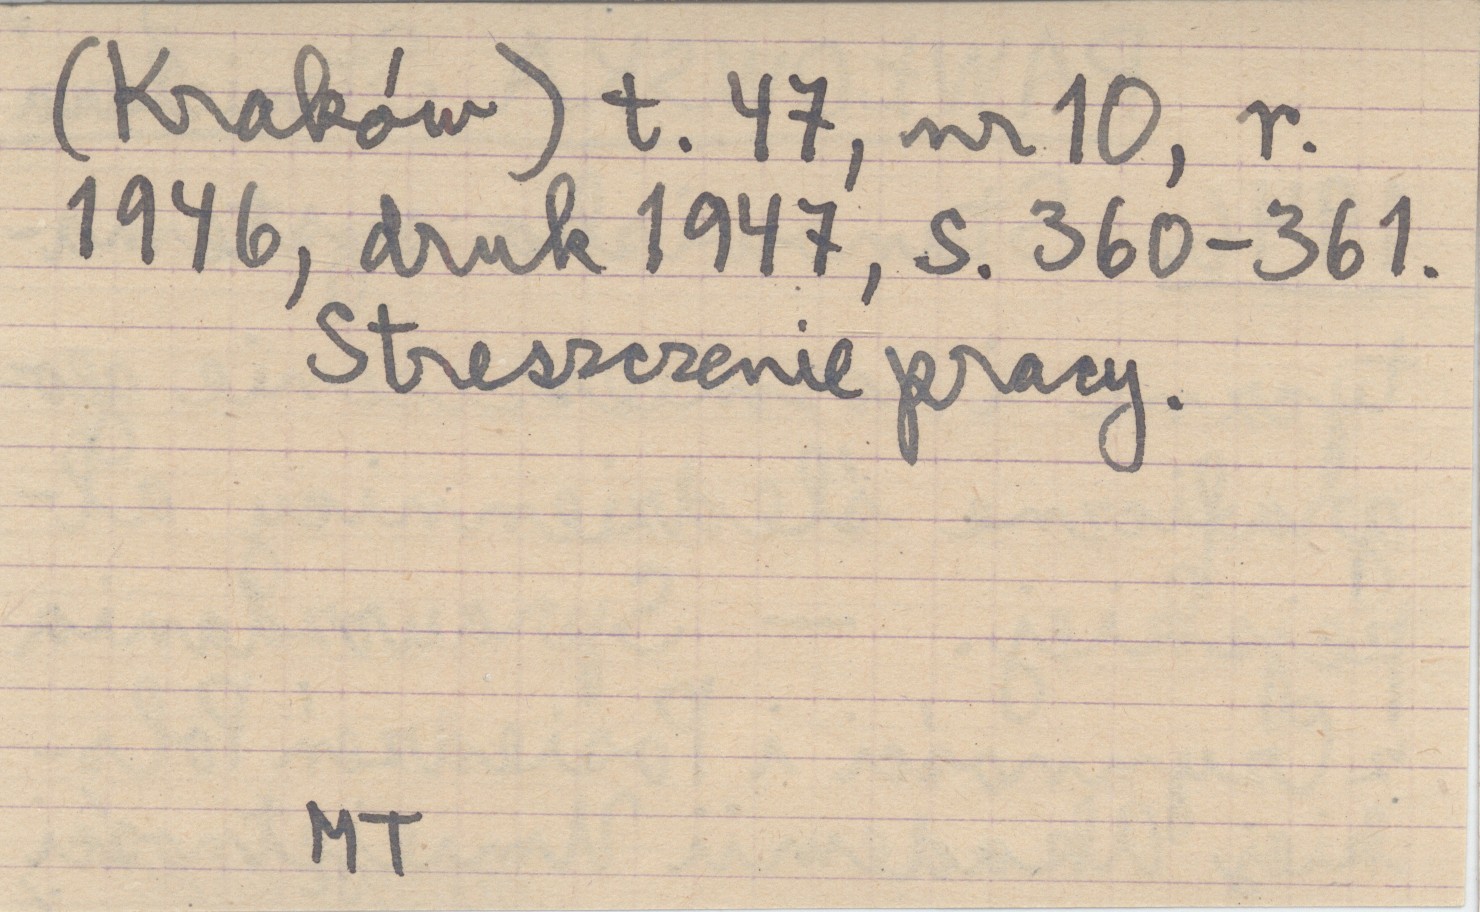 (Kraków) t. 47, nr 10, r.
1946, druk 1947, s. 360-361.
Streszczenie pracy.
MT